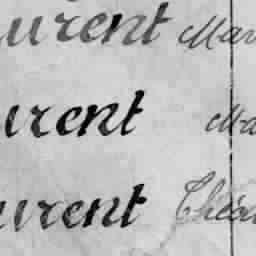 urent Mar
urent Ma
urent Théod